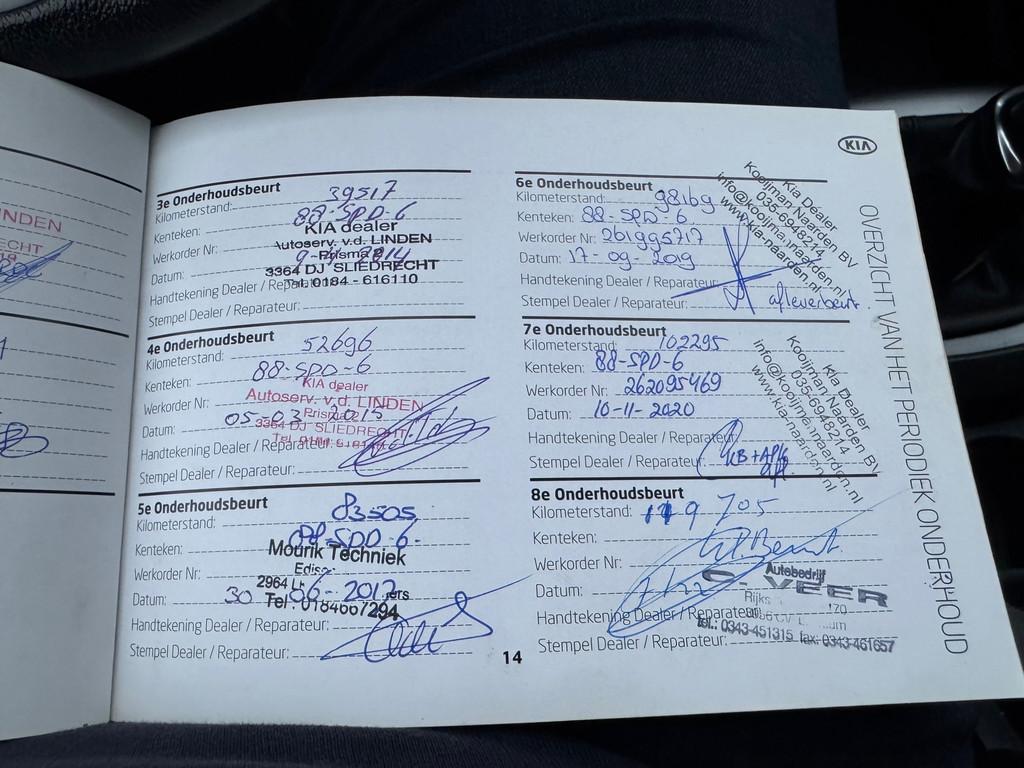 KIA
OVERZICHT VAN HET PERIODIEK ONDERHOUD
LINDEN
3e Onderhoudsbeurt
Kilometerstand: 39517
Kenteken: 88-SPD-6
KIA dealer
Werkorder Nr:
Autoserv. v.d. LINDEN
Datum:
3364 DJ SLIEDRECHT
Tel. 0184 - 616110
Handtekening Dealer / Reparateur:
Stempel Dealer / Reparateur:
4e Onderhoudsbeurt
Kilometerstand: 52696
Kenteken: 88-SPD-6
KIA dealer
Werkorder Nr:
Autoserv. v.d. LINDEN
Datum: 05-03-2015
3364 DJ SLIEDRECHT
Handtekening Dealer / Reparateur:
Stempel Dealer / Reparateur:
5e Onderhoudsbeurt
Kilometerstand: 83505
Kenteken: 88-SPD-6
Mourik Techniek
Werkorder Nr:
2964
Datum: 30 06-2017
Tel.: 0184667294
Handtekening Dealer / Reparateur:
Stempel Dealer / Reparateur:
6e Onderhoudsbeurt
Kilometerstand: 98169
Kenteken: 88-SPD-6
Werkorder Nr: 261995717
Datum: 17-09-2019
Handtekening Dealer / Reparateur:
Stempel Dealer / Reparateur: afleverbeurt
Kia Dealer
Kooijman Naarden BV
035-6948214
info@kooijman.naarden.nl
www.kia-naarden.nl
7e Onderhoudsbeurt
Kilometerstand: 102295
Kenteken: 88-SPD-6
Werkorder Nr: 262095469
Datum: 10-11-2020
Handtekening Dealer / Reparateur:
Stempel Dealer / Reparateur: KB+APK
Kia Dealer
Kooijman Naarden BV
035-6948214
info@kooijman.naarden.nl
www.kia-naarden.nl
8e Onderhoudsbeurt
Kilometerstand: 119705
Kenteken:
Werkorder Nr:
Autobedrijf
Datum:
VEER
Rijks
Handtekening Dealer / Reparateur:
tel.: 0343-451315 fax: 0343-461657
Stempel Dealer / Reparateur:
14